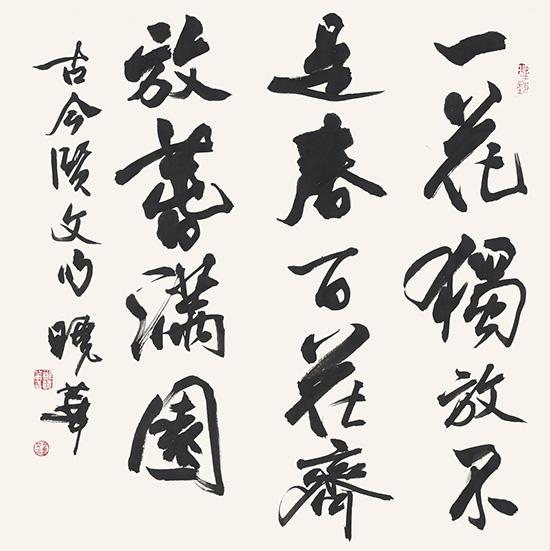 一花獨放不
是春百花齊
放春滿園
古今賢文句 曉華